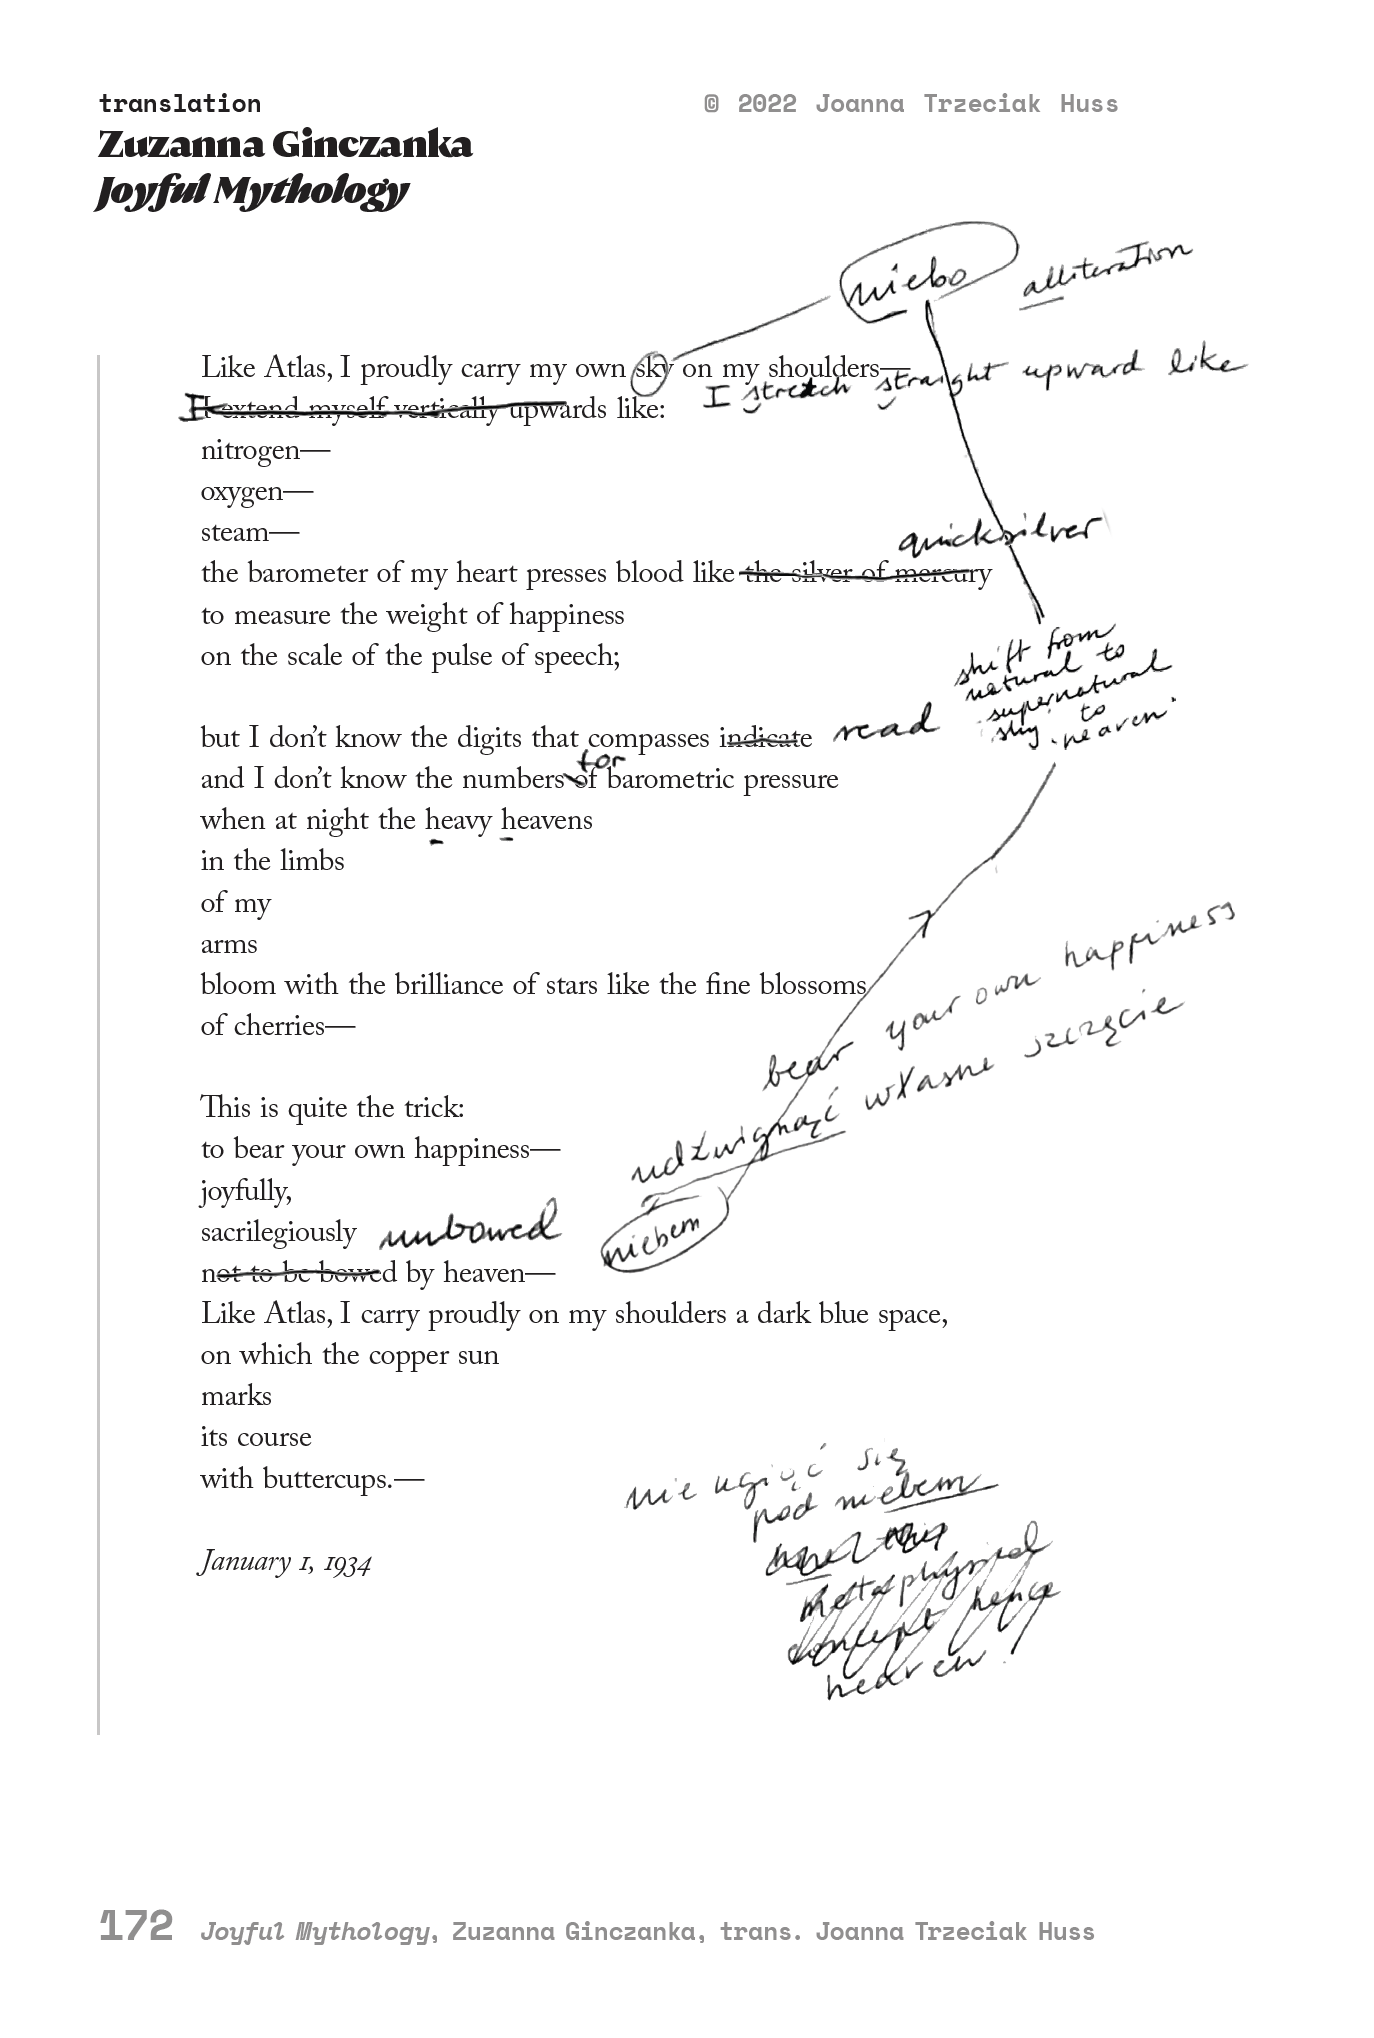 translation
© 2022 Joanna Trzeciak Huss
Zuzanna Ginczanka
Joyful Mythology
niebo
alliteration
Like Atlas, I proudly carry my own sky on my shoulders—
I stretch straight upward like
I extend myself vertically upwards like:
nitrogen—
oxygen—
steam—
quicksilver
the barometer of my heart presses blood like the silver of mercury
to measure the weight of happiness
on the scale of the pulse of speech;
shift from
natural to
supernatural
sky to
heaven
but I don’t know the digits that compasses indicate read
for
and I don’t know the numbers of barometric pressure
when at night the heavy heavens
in the limbs
of my
arms
bloom with the brilliance of stars like the fine blossoms
of cherries—
bear your own happiness
udźwignąć własne szczęcie
This is quite the trick:
to bear your own happiness—
joyfully,
sacrilegiously unbowed
niebem
not to be bowed by heaven—
Like Atlas, I carry proudly on my shoulders a dark blue space,
on which the copper sun
marks
its course
with buttercups.—
nie ugiąć się
pod niebem
metaphysical
concept hence
heaven!
January 1, 1934
172 Joyful Mythology, Zuzanna Ginczanka, trans. Joanna Trzeciak Huss